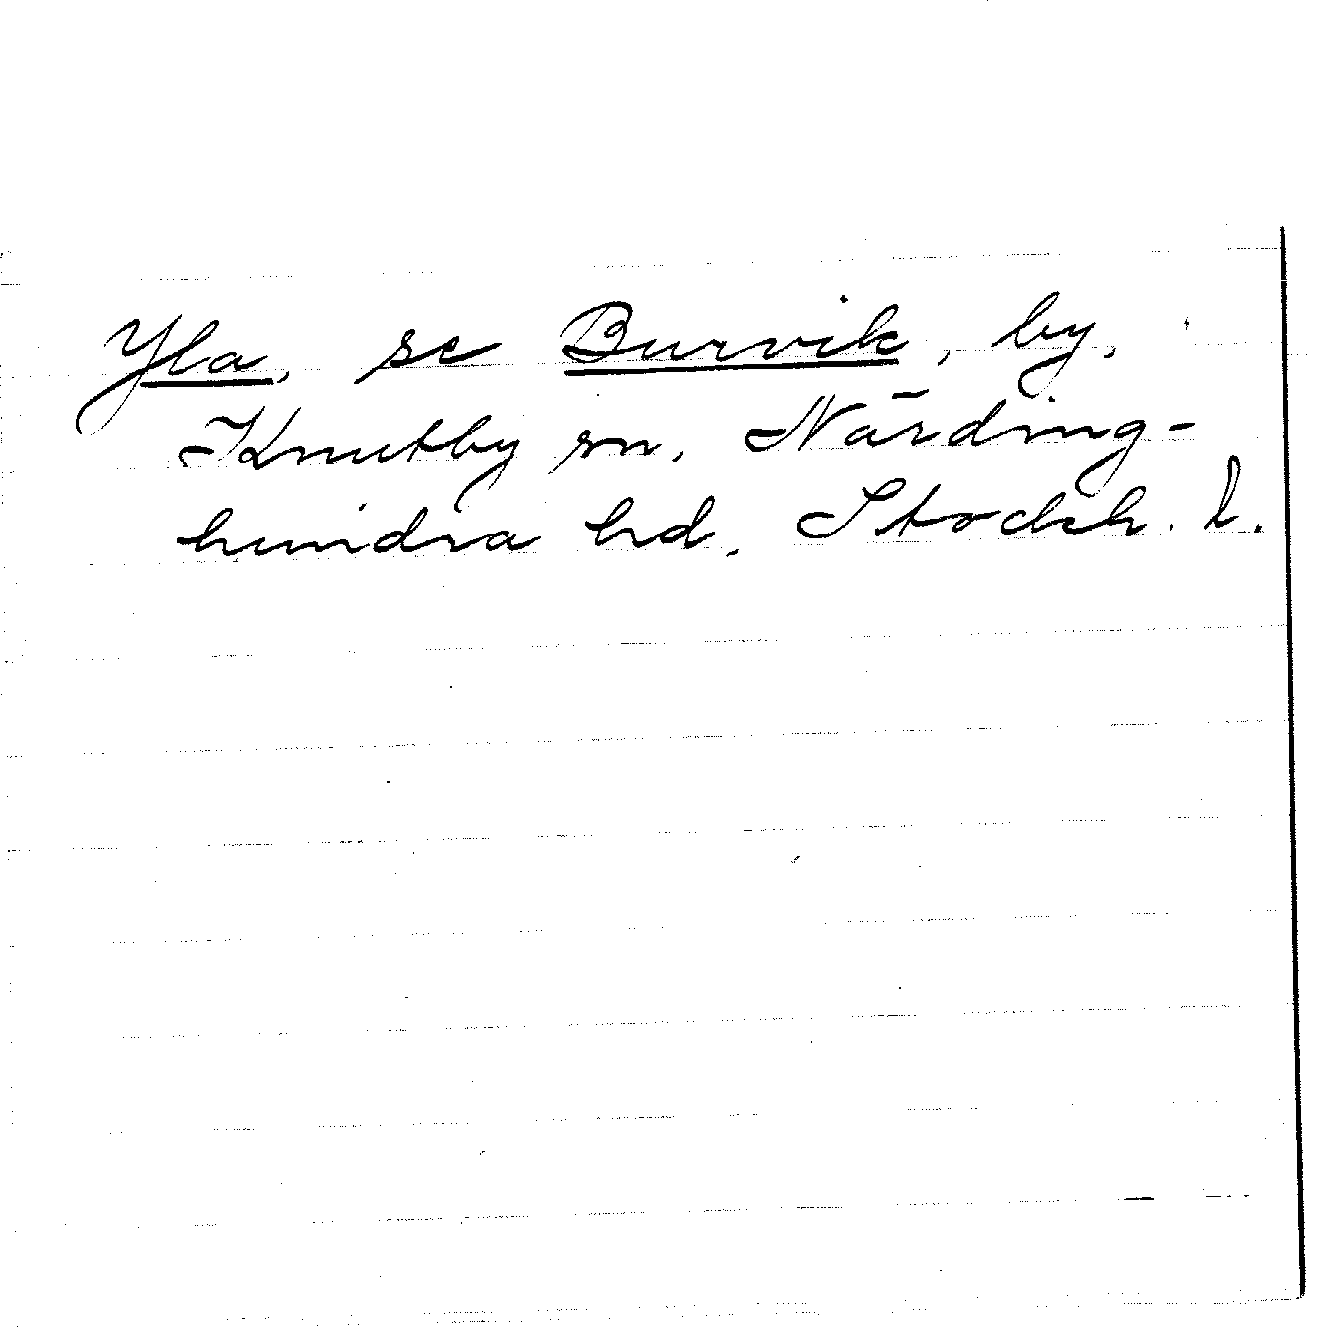 Yla, se Burvik, by,
Knutby sn, Närding-
hundra hd, Stockh. l.